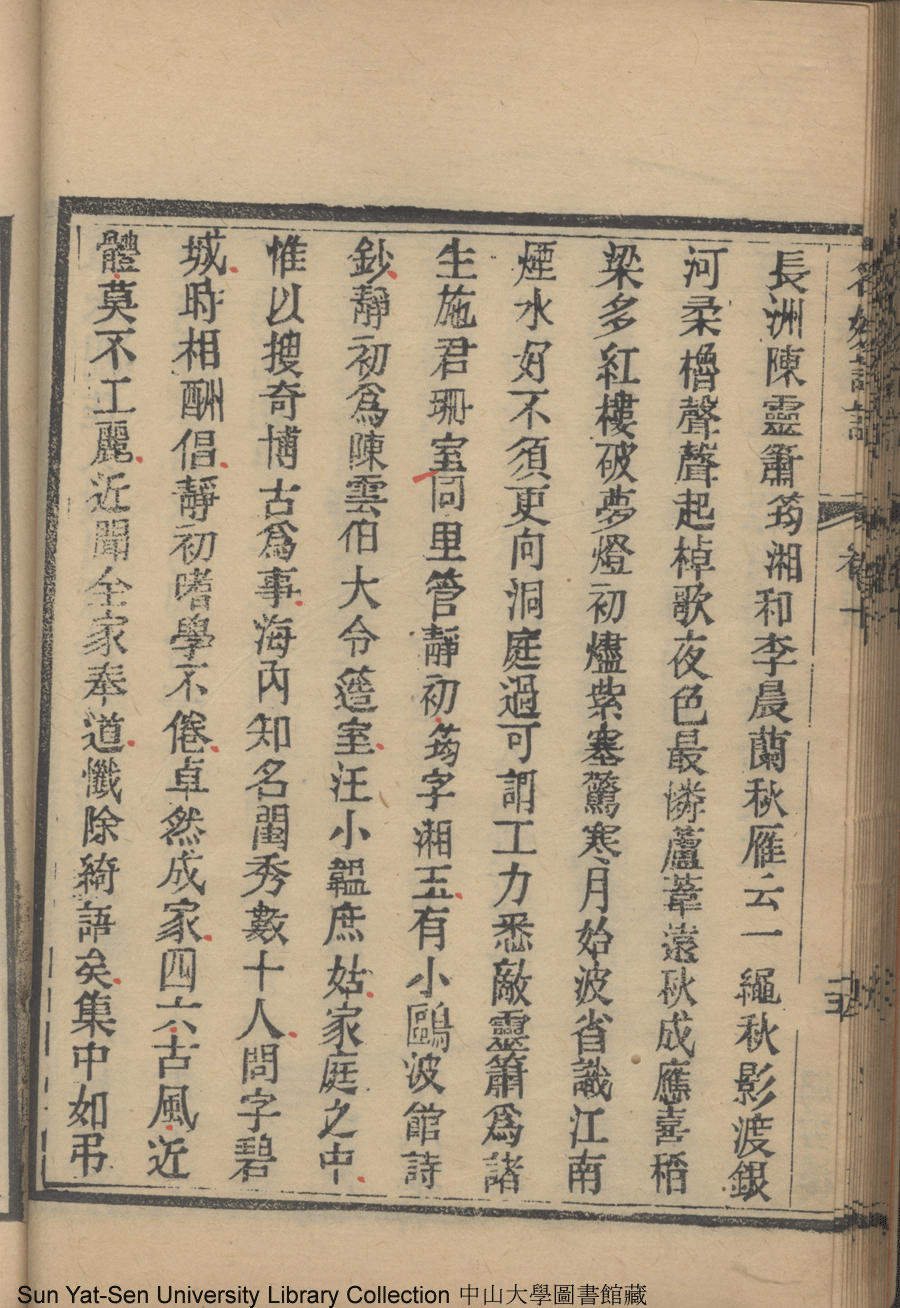 長洲陳靈簫筠湘和李晨蘭秋雁云一繩秋影渡銀
河柔櫓聲聲起棹歌夜色最憐蘆葦遠秋成應喜稻
梁多紅樓破夢燈初燼紫塞驚寒月始波省識江南
煙水好不須更向洞庭過可謂工力悉敵靈簫爲諸
生施君珊室同里管靜初筠字湘玉有小鷗波館詩
鈔靜初爲陳雲伯大令簉室汪小韞庶姑家庭之中
惟以搜奇博古爲事海內知名閨秀數十人問字碧
城時相酬倡靜初嗜學不倦卓然成家四六古風近
體莫不工麗近聞全家奉道懺除綺語矣集中如弔
Sun Yat-Sen University Library Collection 中山大學圖書館藏